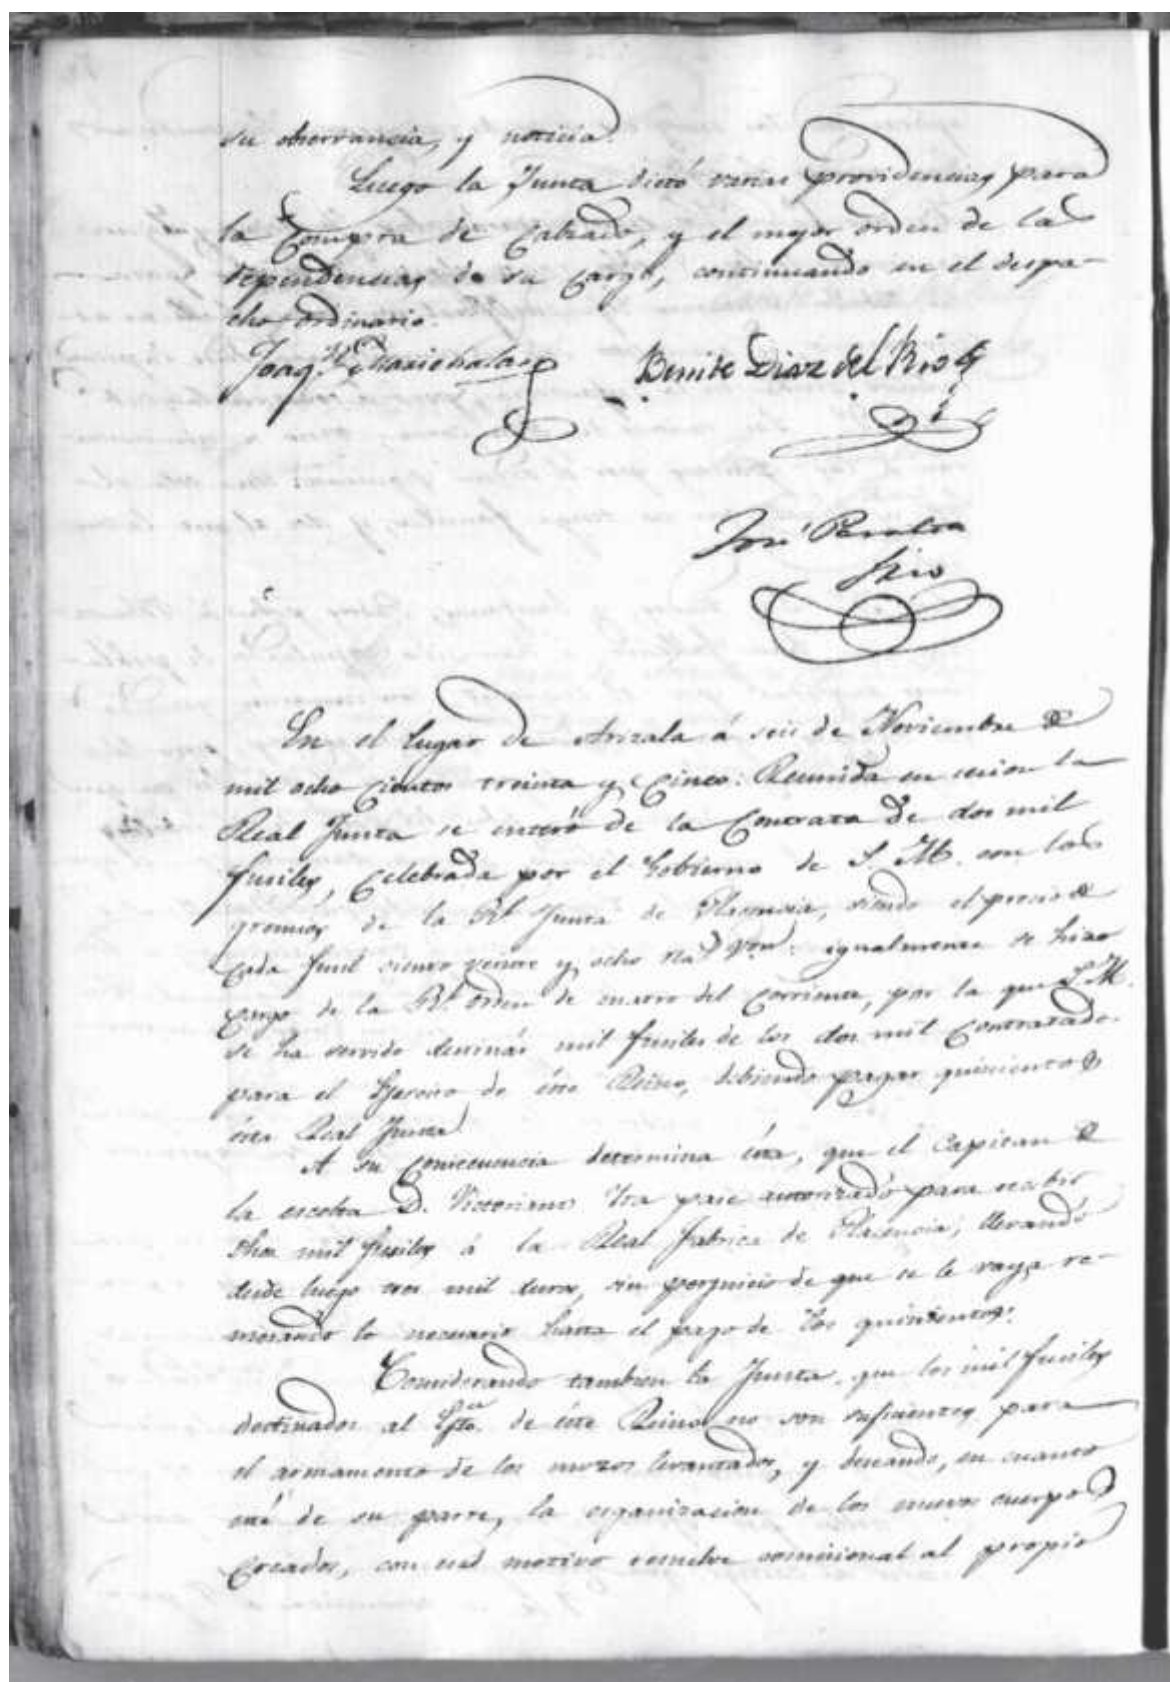 su observancia, y noticia.
Luego la Junta dictó varias providencias para
la Compra de Calzado, y el mejor orden de las
dependencias de su cargo, continuando en el despa-
cho ordinario.
Joaq.n Marichalar Benito Diaz del Rio
José Peralta
Srio
En el lugar de Arizala á seis de Noviembre de
mil ocho cientos treinta y cinco: Reunida en sesion la
Real Junta se enteró de la Contrata de dos mil
fusiles, Celebrada por el Gobierno de S. M. con los
gremios de la Rl. Junta de Placencia, siendo el precio de
cada fusil ciento veinte y ocho rs. von: igualmente se hizo
cargo de la Rl. orden de cuatro del corriente, por la que S. M.
se ha servido destinar mil fusiles de los dos mil Contratados
para el Ejercito de éste Reino, debiendo pagar quinientos
ésta Real Junta.
A su consecuencia determina ésta, que el Capitan de
la escolta D. Victoriano pase autorizado para recibir
dhos mil fusiles á la Real fabrica de Placencia, llevando
desde luego tres mil duros, sin perjuicio de que se le vaya re-
mesando lo necesario hasta el pago de los quinientos.
Considerando tambien la Junta, que los mil fusiles
destinados al Egto. de éste Reino no son suficientes para
el armamento de los mozos levantados, y deseando, en cuanto
esté de su parte, la organizacion de los nuevos cuerpos
Creados, con este motivo resuelve comisional al propio